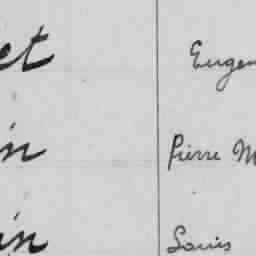 et Eugen
in Pierre M
in Louis